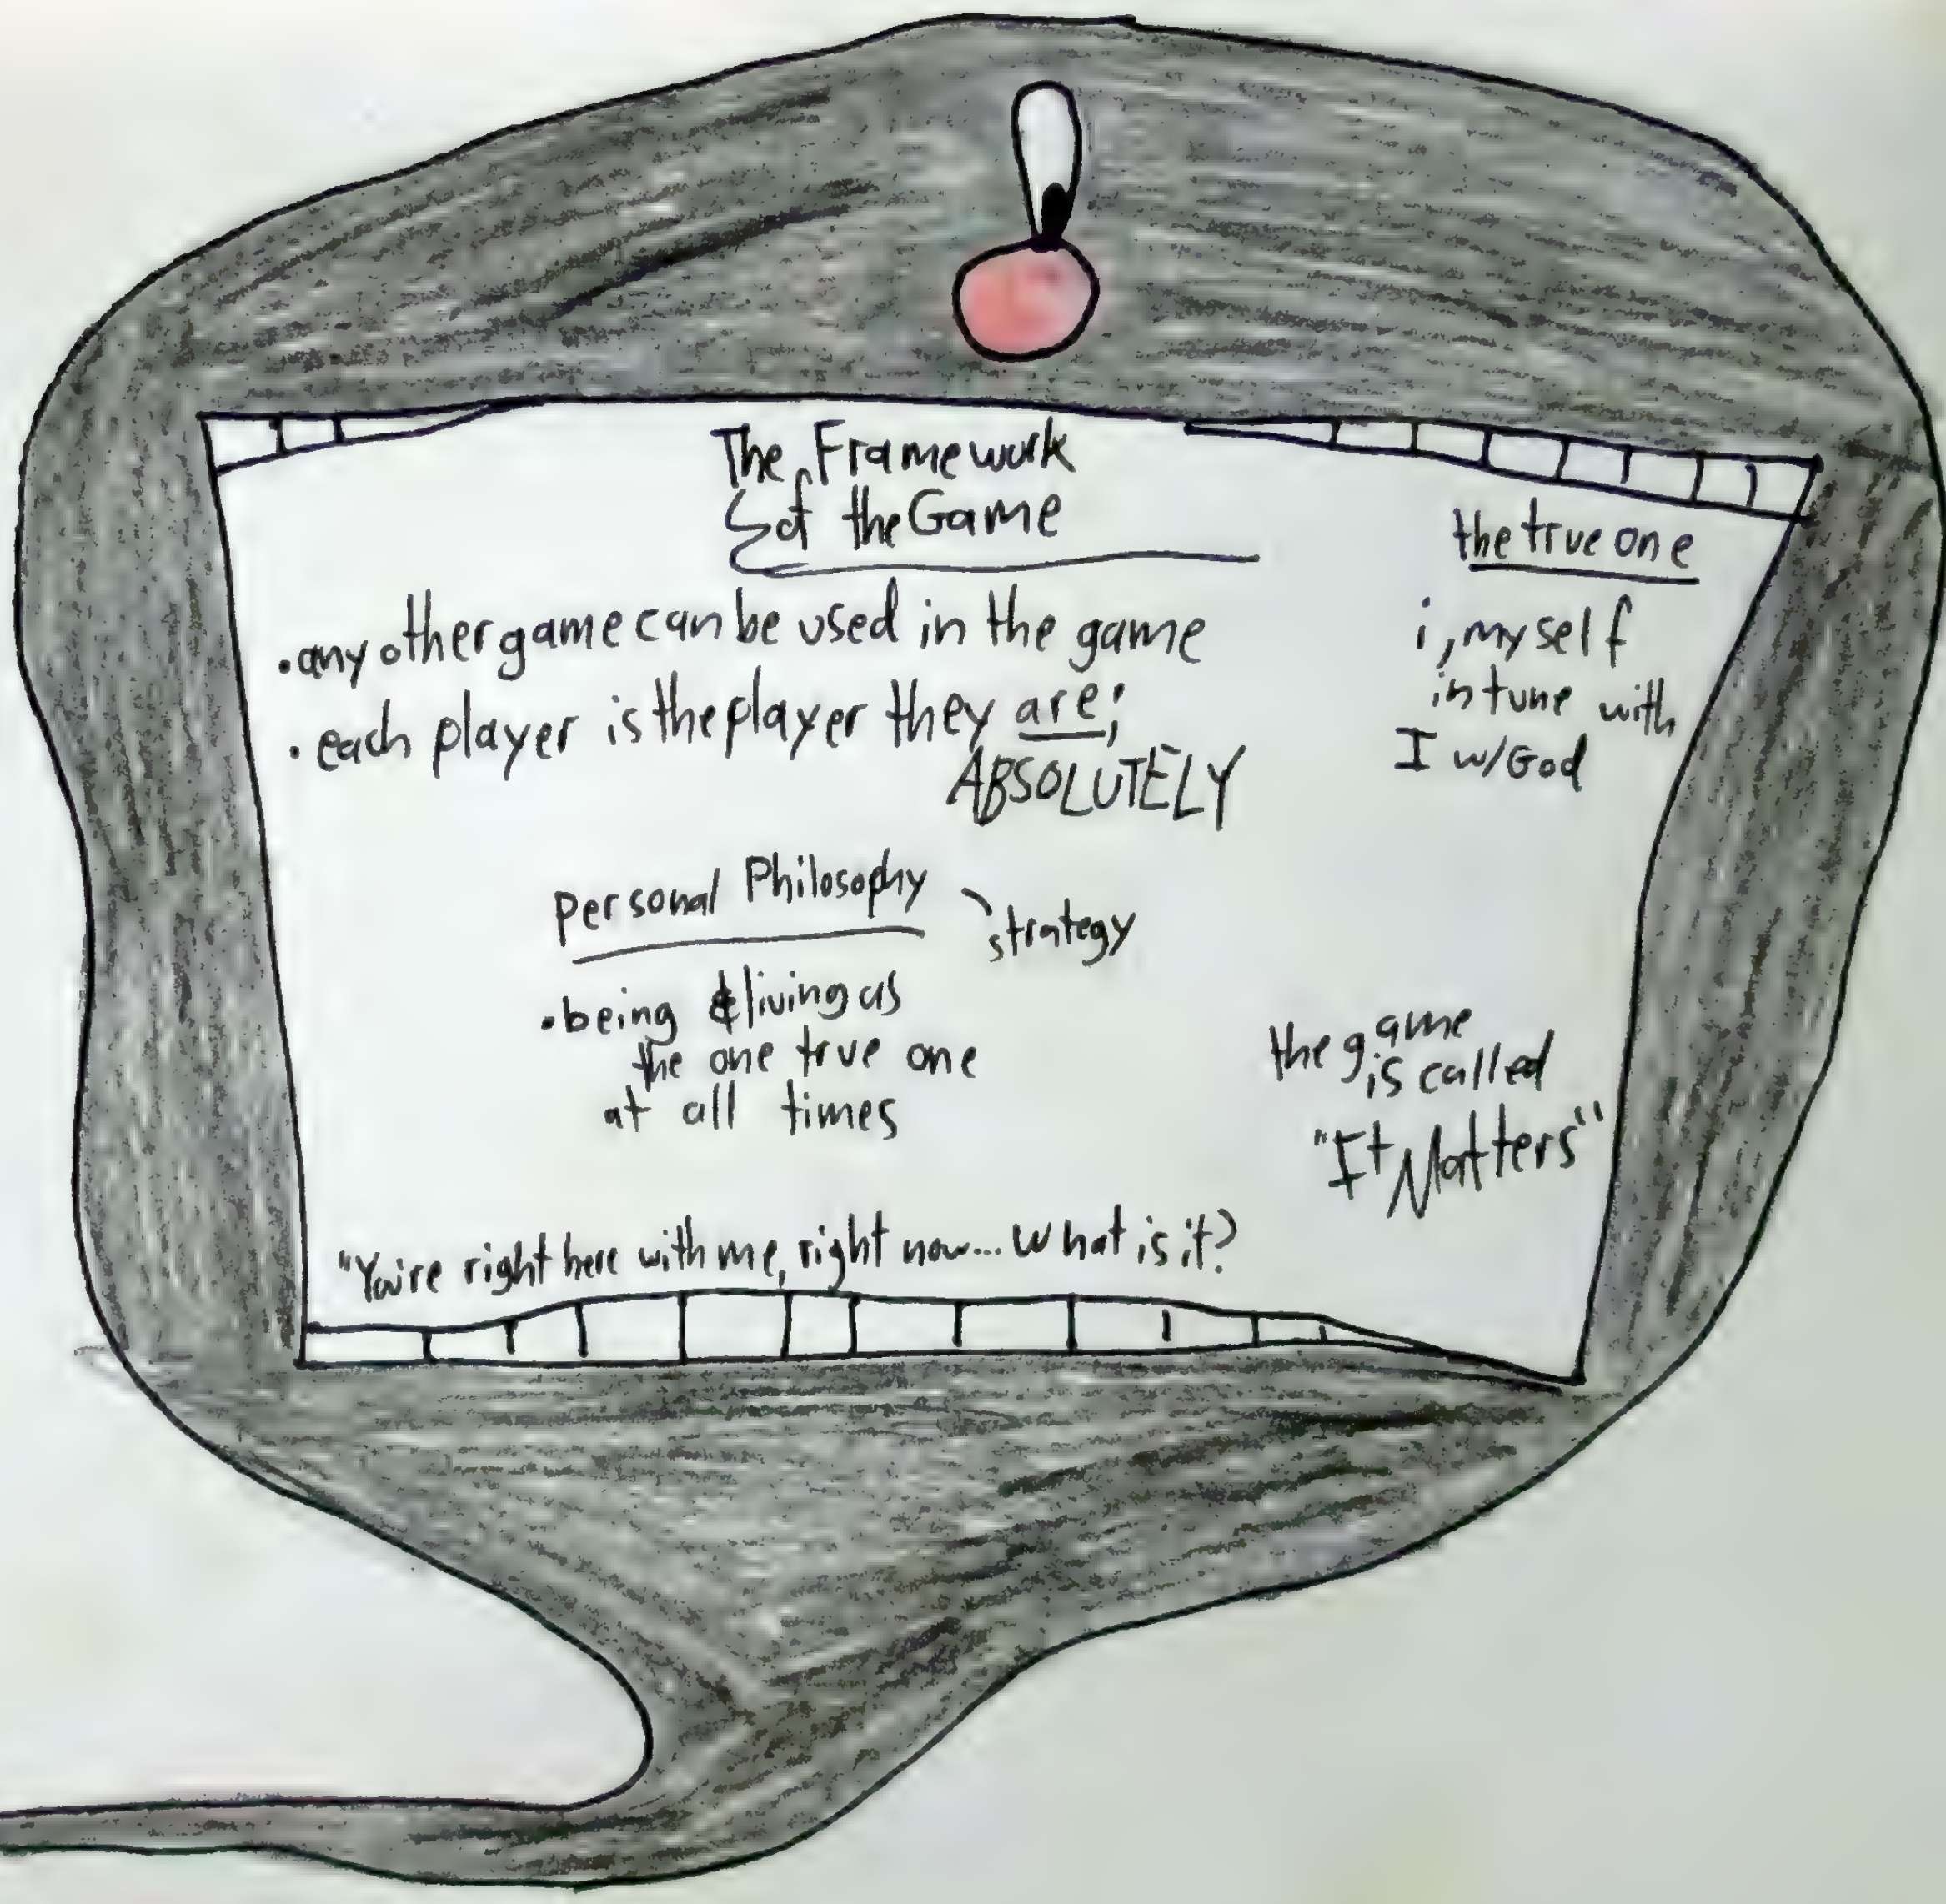 The Framework
of the Game
• any other game can be used in the game
• each player is the player they are;
ABSOLUTELY
the true one
i, myself
in tune with
I w/God
Personal Philosophy
strategy
• being & living as
the one true one
at all times
the game
is called
"It Matters"
"You're right here with me, right now... What is it?